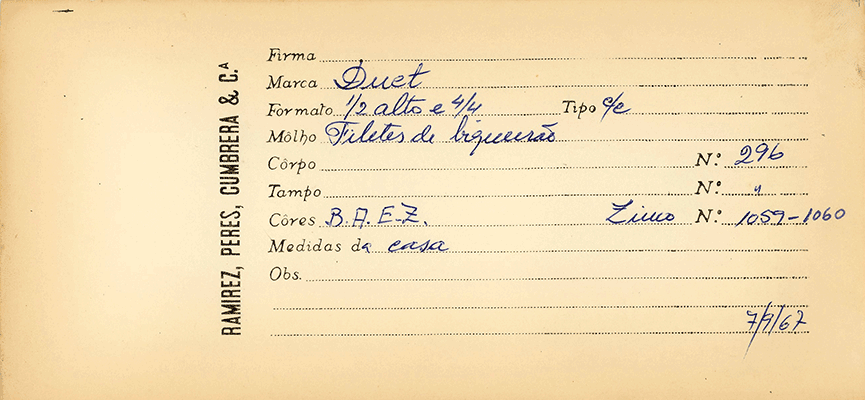 RAMIREZ, PERES, CUMBRERA & C.ᴬ
Firma
Marca Duet
Formato 1/2 alto e 4/4 Tipo c/c
Môlho Filetes de biqueirão
Côrpo N.º 296
Tampo N.º "
Côres B. A. E-Z. Zinco N.º 1059-1060
Medidas da casa
Obs.
7/9/67